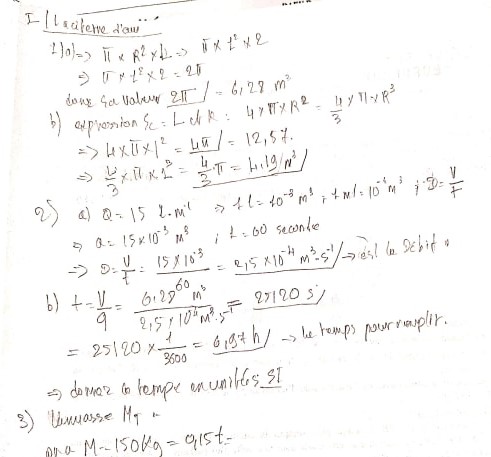 I / La citerne d'eau
1) a) => π × R² × L => π × 1² × 2
=> π × 1² × 2 = 2π
donc sa valeur 2π = 6,28 m³
b) expression Sc = L et R : 4 × π × R² = 4/3 × π × R³
=> 4 × π × 1² = 4π = 12,57.
=> 4/3 × π × 1³ = 4/3 π = 4,19 m³
2) a) Q = 15 L·m⁻¹ => 1 l = 10⁻³ m³ ; 1 ml = 10⁻⁶ m³ ; D = V/t
=> Q = 15 × 10⁻³ m³ ; t = 60 seconde
=> D = V/t = 15 × 10⁻³ / 60 = 2,5 × 10⁻⁴ m³·s⁻¹ -> est le Débit.
b) t = V/q = 6,28 m³ / 2,5 × 10⁻⁴ m³·s⁻¹ = 25120 s
= 25120 × 1/3600 = 6,97 h -> le temps pour remplir.
=> donner le temps en unités SI
3) la masse M
on a M = 150 kg = 0,15 t =